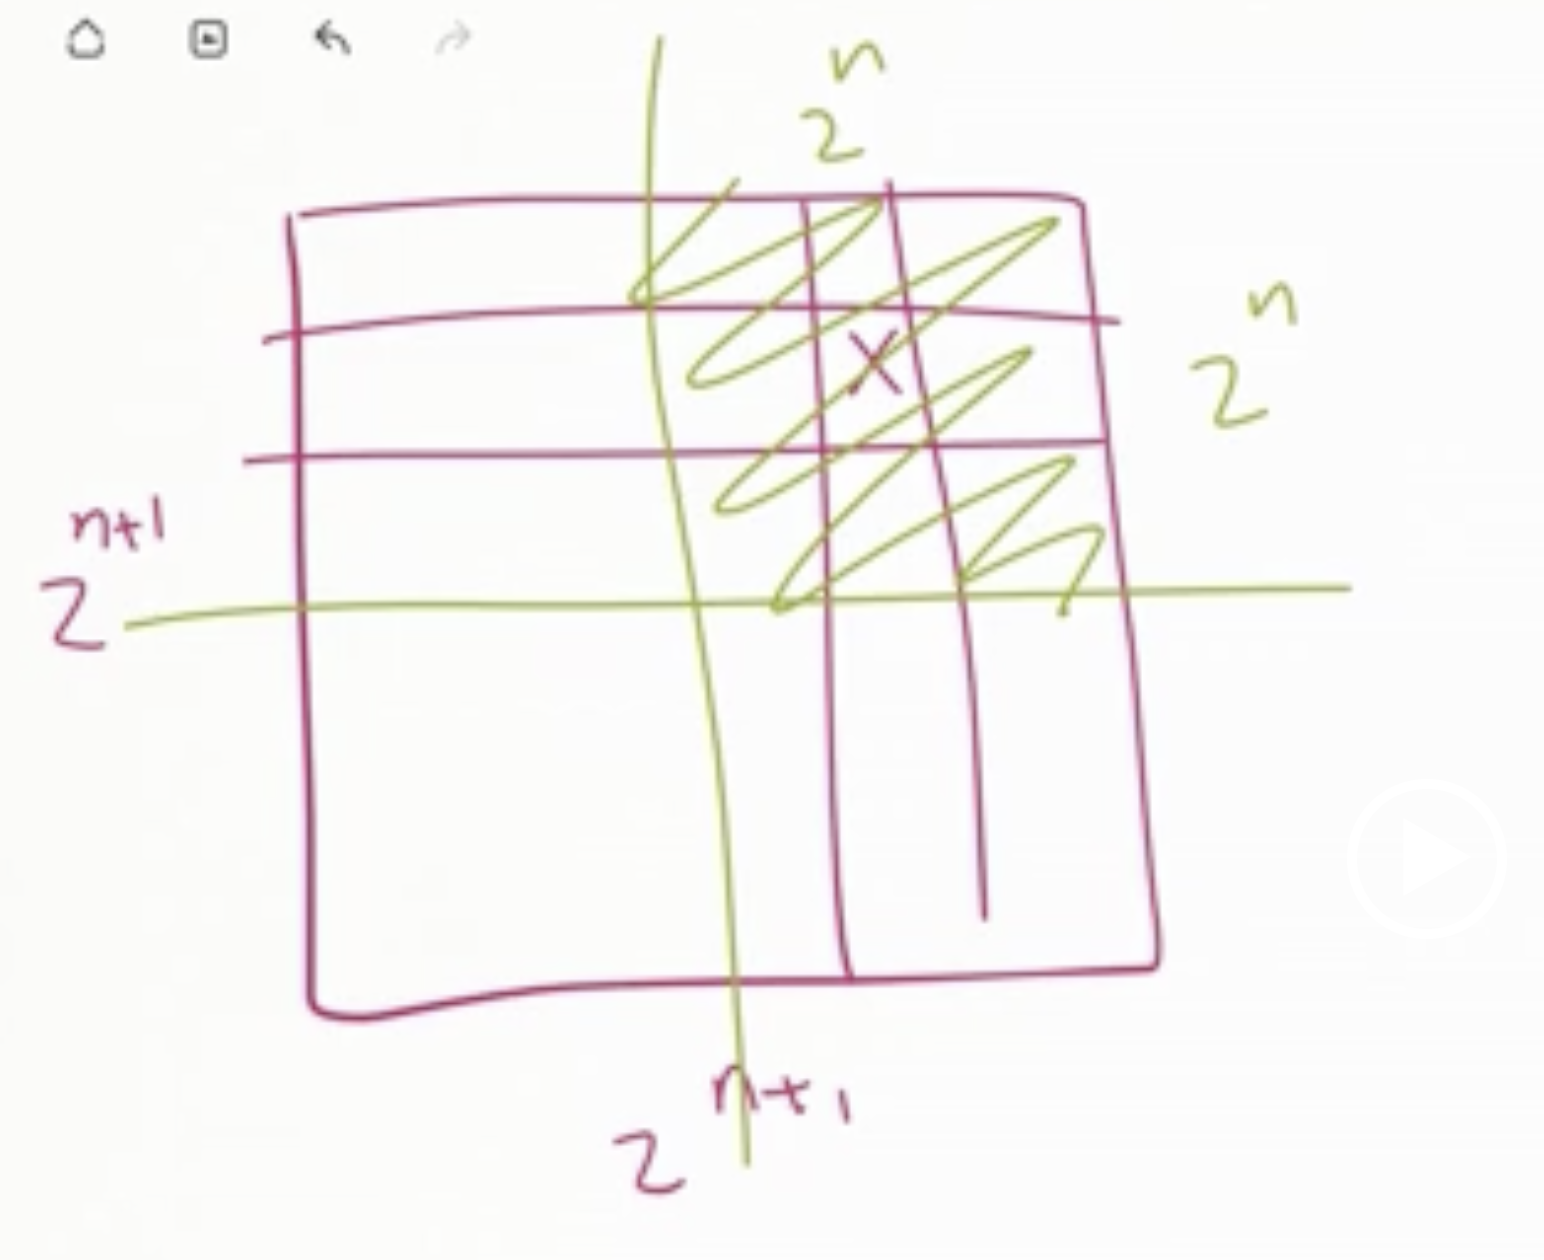 2^n
2^n
X
2^{n+1}
2^{n+1}